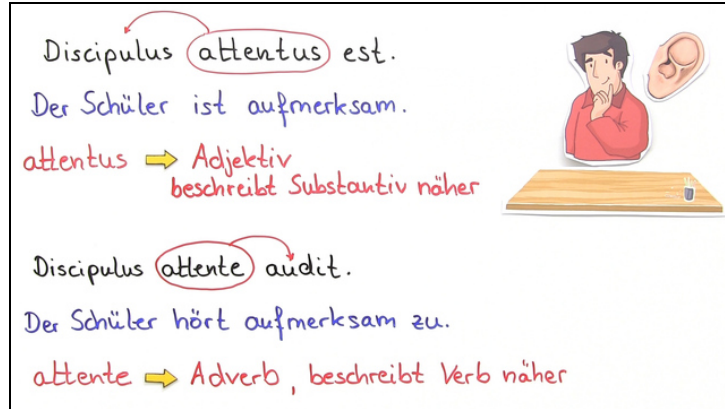 Discipulus attentus est.
Der Schüler ist aufmerksam.
attentus ⇒ Adjektiv
beschreibt Substantiv näher
Discipulus attente audit.
Der Schüler hört aufmerksam zu.
attente ⇒ Adverb, beschreibt Verb näher